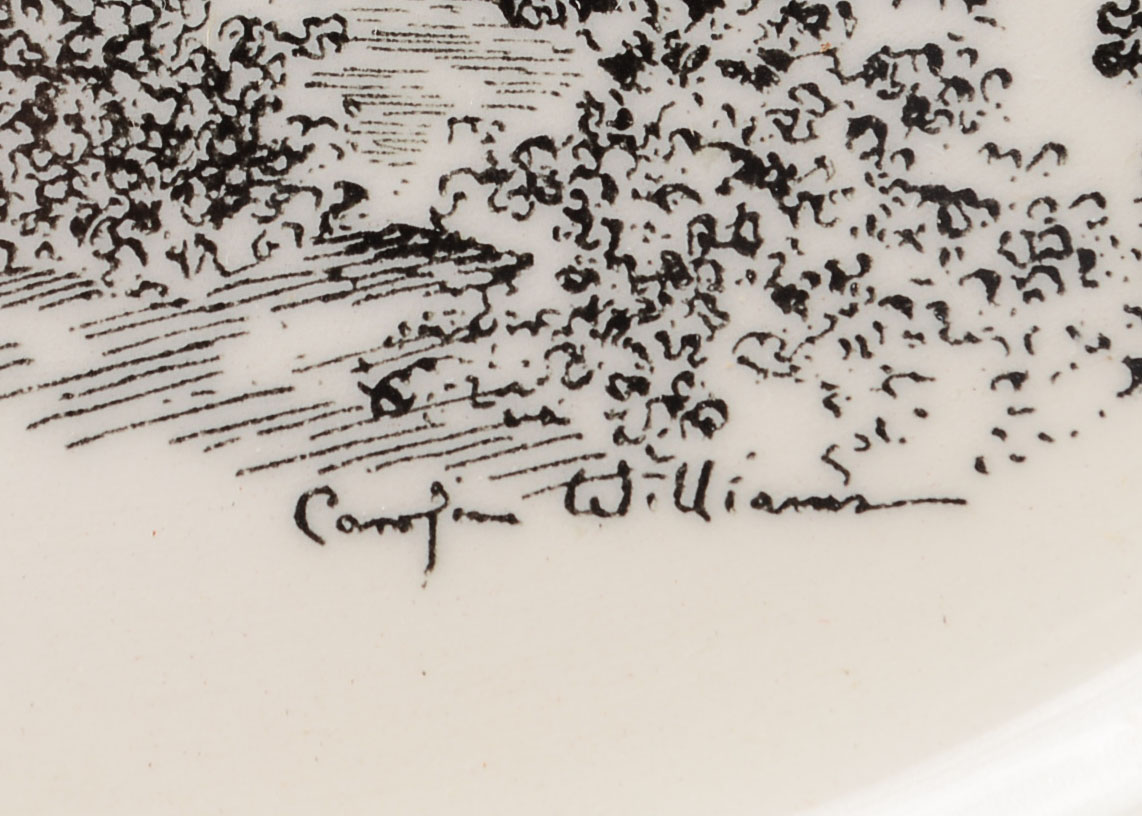 Carolyn Williams